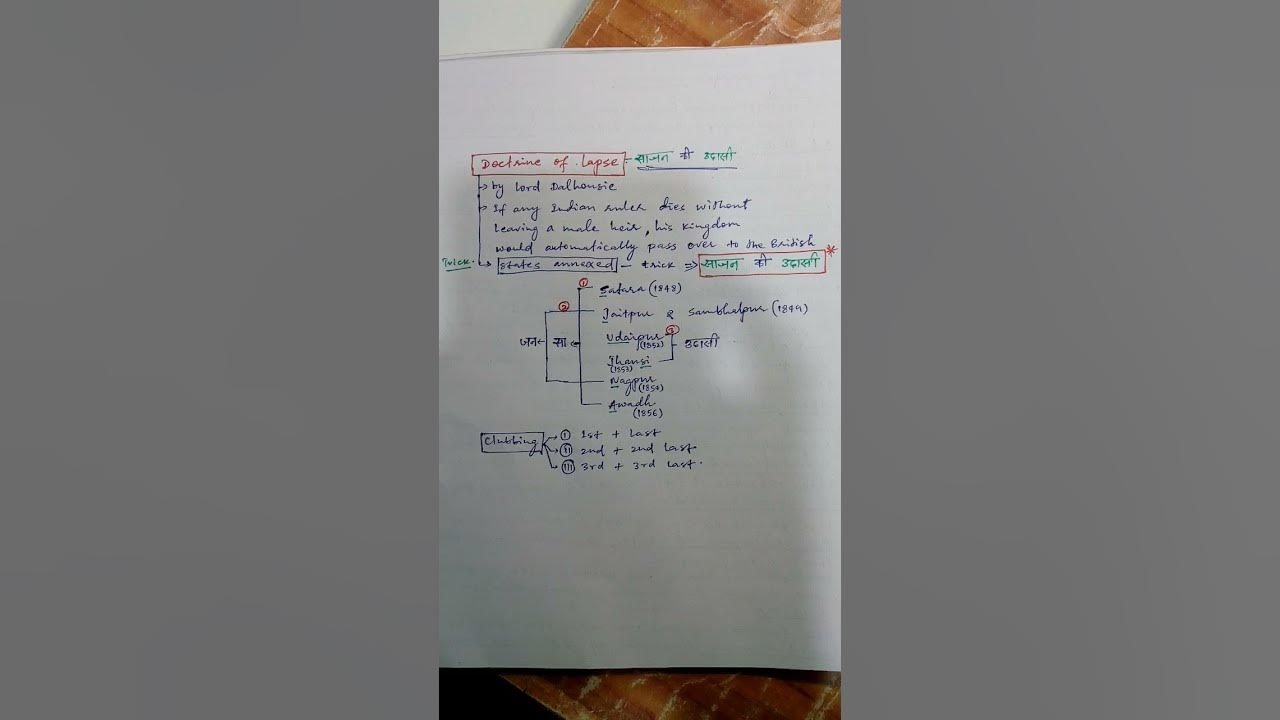 Doctrine of Lapse - साजन की उदासी
→ by Lord Dalhousie
→ If any Indian ruler dies without
leaving a male heir, his kingdom
would automatically pass over to the British
Trick. → States annexed - trick ⇒ साजन की उदासी *
① Satara (1848)
② Jaitpur & Sambhalpur (1849)
Udaipur ③
(1852)
जन ← सा ← उदासी
Jhansi
(1853)
Nagpur
(1854)
Awadh
(1856)
Clubbing → Ⓘ 1st + Last
→ ⓘⓘ 2nd + 2nd Last
→ ⓘⓘⓘ 3rd + 3rd Last.